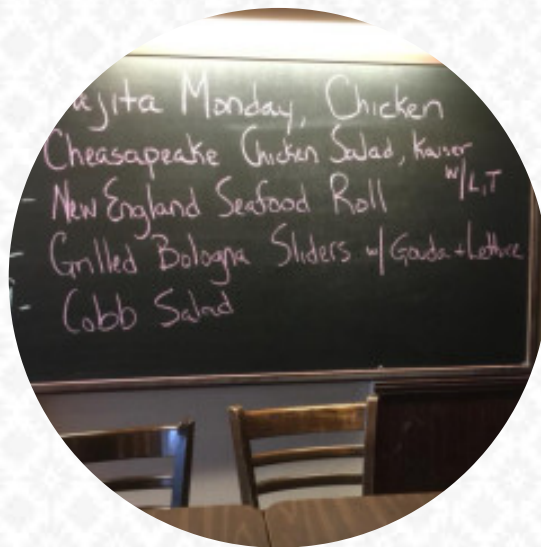 ajita Monday, Chicken
Cheasapeake Chicken Salad, Kaiser
w/L,T
- New England Seafood Roll
- Grilled Bologna Sliders w/ Gouda + Lettuce
- Cobb Salad